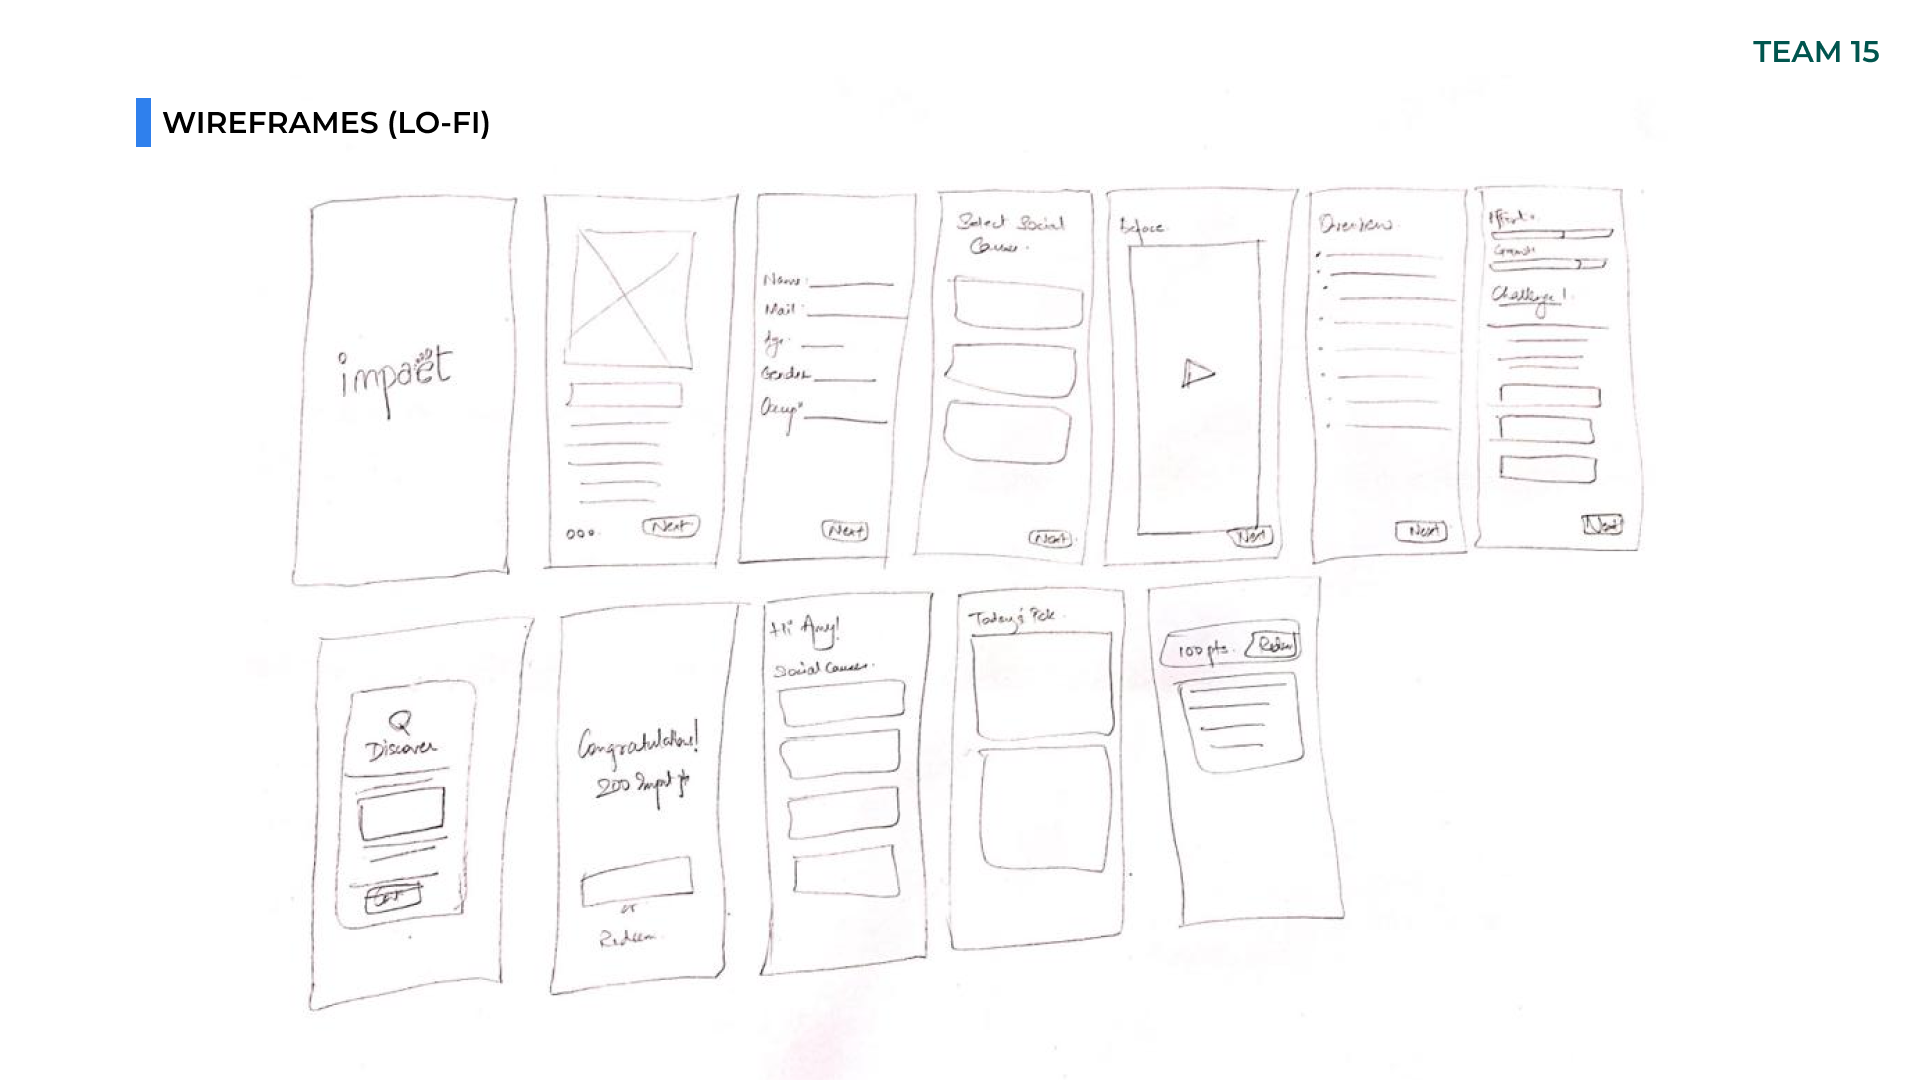 TEAM 15
WIREFRAMES (LO-FI)
impact
Next
Name:
Mail:
Age:
Gender
Next
Select Social
Cause.
Next
Before
Next
Overview
Next
Growth
Challenge 1.
Next
Discover
Congratulations!
200 Impact pt
or
Redeem
Hi Amy!
Social Causes.
Today's Pick
100 pts.
Redeem